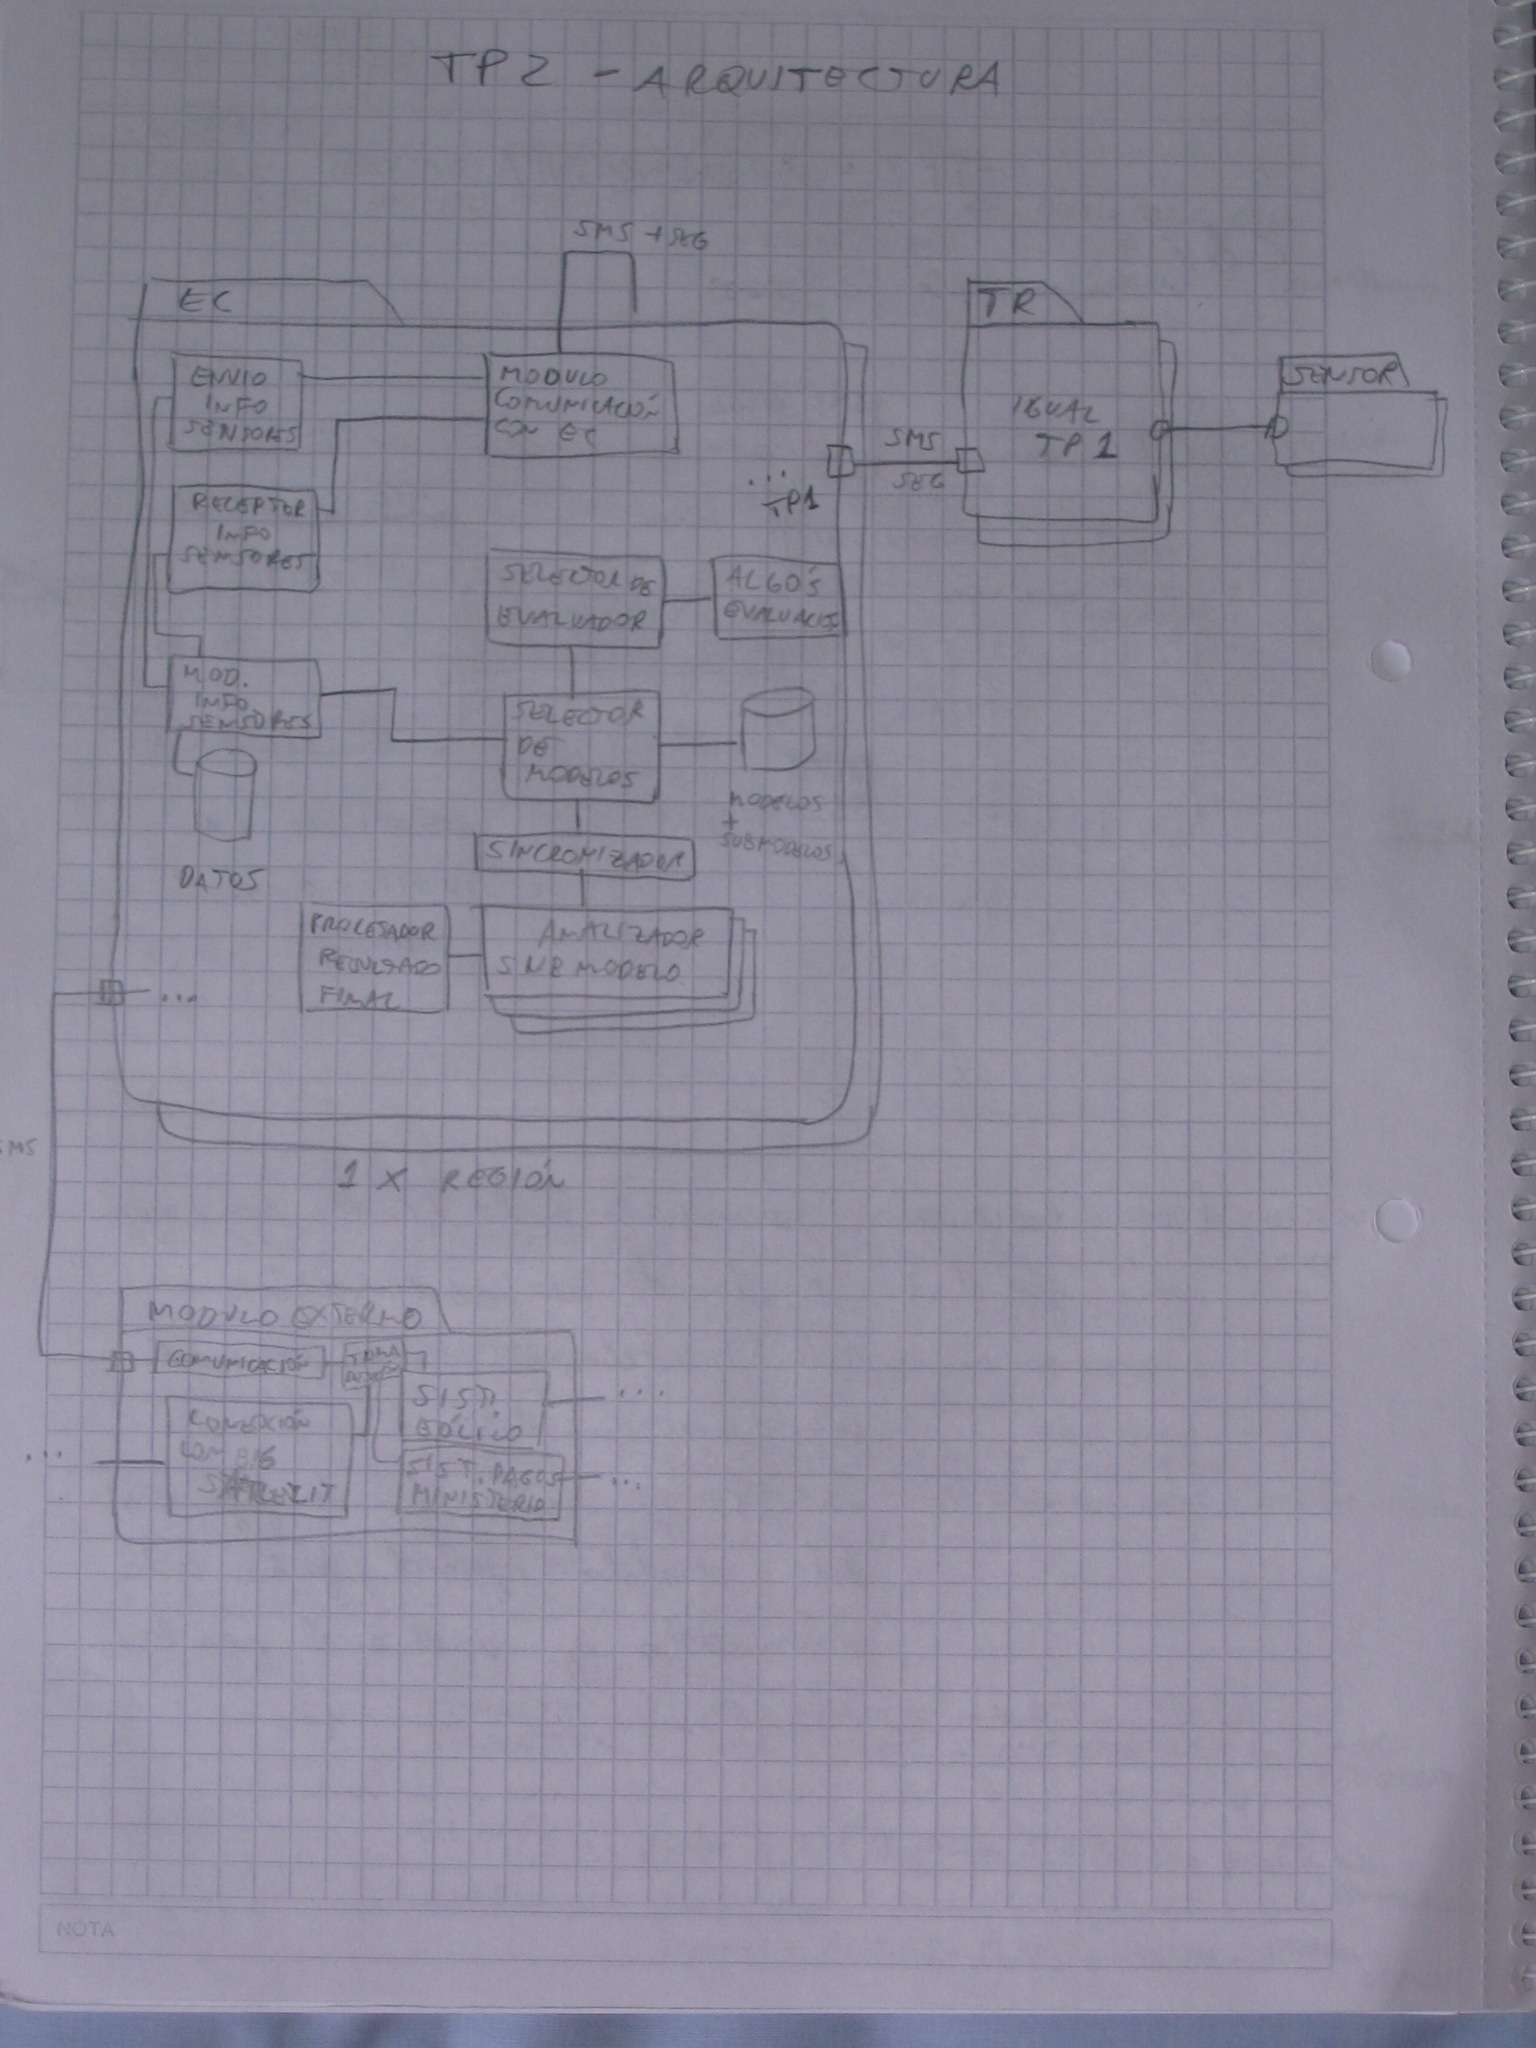 TP2 - ARQUITECTURA
SMS + SEG
EC
ENVIO
INFO
SENSORES
MODULO
COMUNICACIÓN
CON EC
RECEPTOR
INFO
SENSORES
...
TP1
SMS
SEG
TR
IGUAL
TP1
SENSOR
SELECTOR DE
EVALUADOR
ALGO'S
EVALUACIÓN
MOD.
INFO
SENSORES
SELECTOR
DE
MODELOS
MODELOS
+
SUBMODELOS
DATOS
SINCRONIZADOR
PROCESADOR
RESULTADO
FINAL
ANALIZADOR
SUBMODELO
...
1 X REGIÓN
SMS
MODULO EXTERNO
COMUNICACIÓN
TOMA
SIST.
EÓLICO
...
CONEXIÓN
CON BIG
SATELLIT
...
SIST. PAGOS
MINISTERIO
...
NOTA